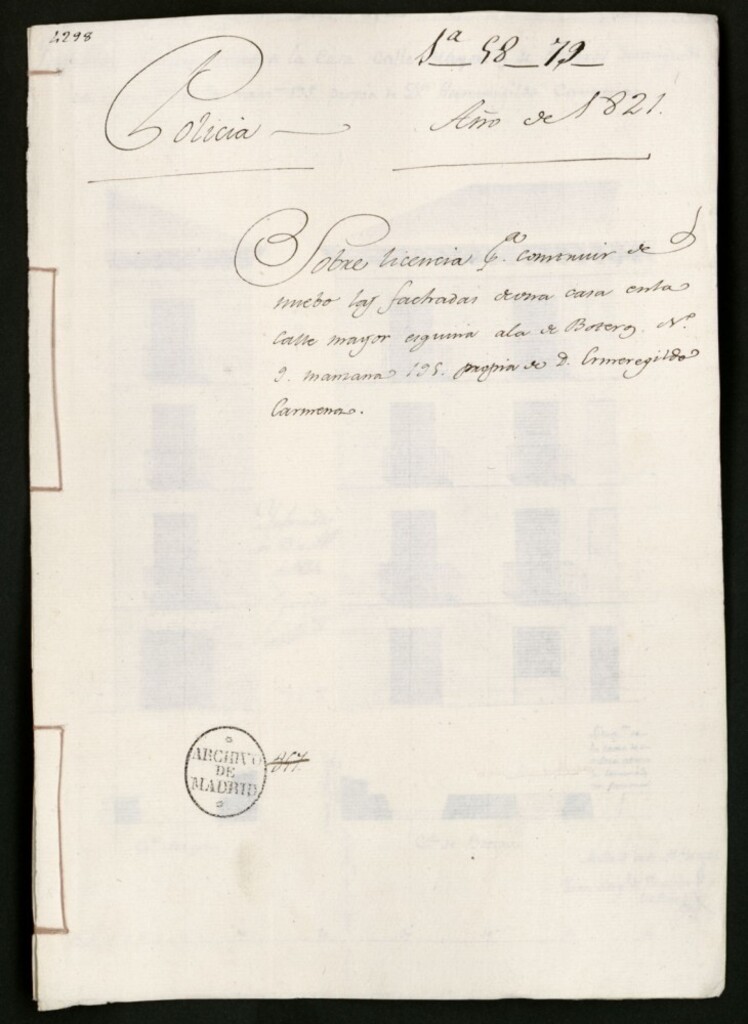 4298
1ª 58 79
Policia
Año de 1821.
Sobre licencia pª. construir de
nuebo las fachadas de una casa enla
calle mayor esquina ala de Boteros. Nº.
9. manzana 195. propia de D. Ermeregildo
Carmena.
ARCHIVO
DE
MADRID